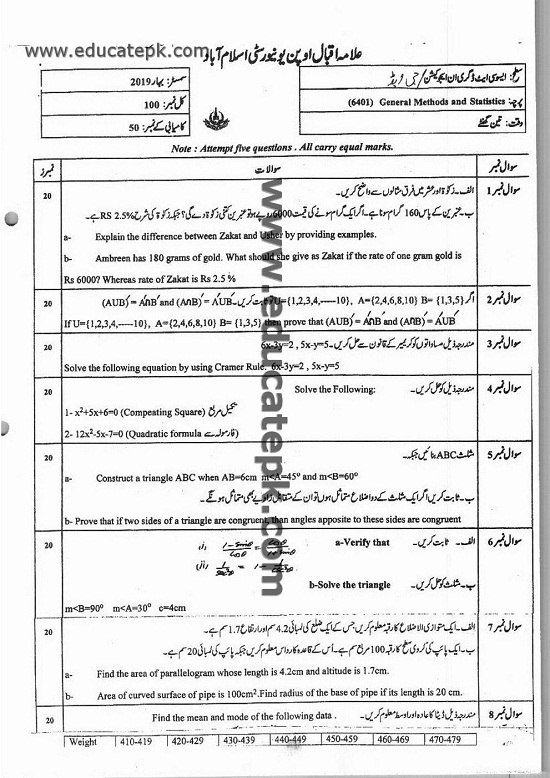 www.educatepk.com
علامہ اقبال اوپن یونیورسٹی اسلام آباد
سطح: ایسوسی ایٹ ڈگری ان ایجوکیشن /
سمسٹر: بہار 2019
پرچہ: General Methods and Statistics (6401)
کل نمبر: 100
وقت: تین گھنٹے
کامیابی کے نمبر: 50
Note : Attempt five questions . All carry equal marks.
سوال نمبر سوالات نمبرز
سوال نمبر 1 الف۔ زکوٰۃ اور عشر میں فرق مثالوں سے واضح کریں۔ 20
ب۔ عنبرین کے پاس 160 گرام سونا ہے۔ اگر ایک گرام سونے کی قیمت 6000 روپے ہو تو عنبرین کتنی زکوٰۃ دے گی؟ جبکہ زکوٰۃ کی شرح 2.5% RS ہے۔
a- Explain the difference between Zakat and Usher by providing examples.
b- Ambreen has 180 grams of gold. What should she give as Zakat if the rate of one gram gold is
Rs 6000? Whereas rate of Zakat is Rs 2.5 %
سوال نمبر 2 اگر U={1,2,3,4,-----10}, A={2,4,6,8,10} B= {1,3,5} ثابت کریں۔ (AUB)′ = A′∩B′ and (A∩B)′ = A′UB′ 20
If U={1,2,3,4,-----10}, A={2,4,6,8,10} B= {1,3,5} then prove that (AUB)′ = A′∩B′ and (A∩B)′ = A′UB′
سوال نمبر 3 مندرجہ ذیل مساواتوں کو کریمر کے قانون سے حل کریں۔ 6x-3y=2 , 5x-y=5 20
Solve the following equation by using Cramer Rule. 6x-3y=2 , 5x-y=5
سوال نمبر 4 مندرجہ ذیل کو حل کریں۔ Solve the Following: 20
1- x²+5x+6=0 (Compeating Square) تکمیل مربع
2- 12x²-5x-7=0 (Quadratic formula فارمولہ سے)
سوال نمبر 5 مثلث ABC بنائیں جبکہ۔ 20
a- Construct a triangle ABC when AB=6cm m<A=45° and m<B=60°
ب۔ ثابت کریں اگر ایک مثلث کے دو اضلاع متماثل ہوں تو ان کے متقابل زاویے بھی متماثل ہونگے۔
b- Prove that if two sides of a triangle are congruent, than angles apposite to these sides are congruent
سوال نمبر 6 الف۔ ثابت کریں۔ a-Verify that 20
ب۔ مثلث کو حل کریں۔ b-Solve the triangle
m<B=90° m<A=30° c=4cm
سوال نمبر 7 الف۔ ایک متوازی الاضلاع کا رقبہ معلوم کریں جس کے ایک ضلع کی لمبائی 4.2 سم اور ارتفاع 1.7 سم ہے۔ 20
ب۔ ایک پائپ کی کروی سطح کا رقبہ 100 مربع سم ہے۔ اُس کے قاعدہ کا رداس معلوم کریں جبکہ پائپ کی لمبائی 20 سم ہے۔
a- Find the area of parallelogram whose length is 4.2cm and altitude is 1.7cm.
b- Area of curved surface of pipe is 100cm².Find radius of the base of pipe if its length is 20 cm.
سوال نمبر 8 مندرجہ ذیل ڈیٹا کا عادہ اور اوسط معلوم کریں۔ Find the mean and mode of the following data . 20
Weight 410-419 420-429 430-439 440-449 450-459 460-469 470-479
www.educatepk.com